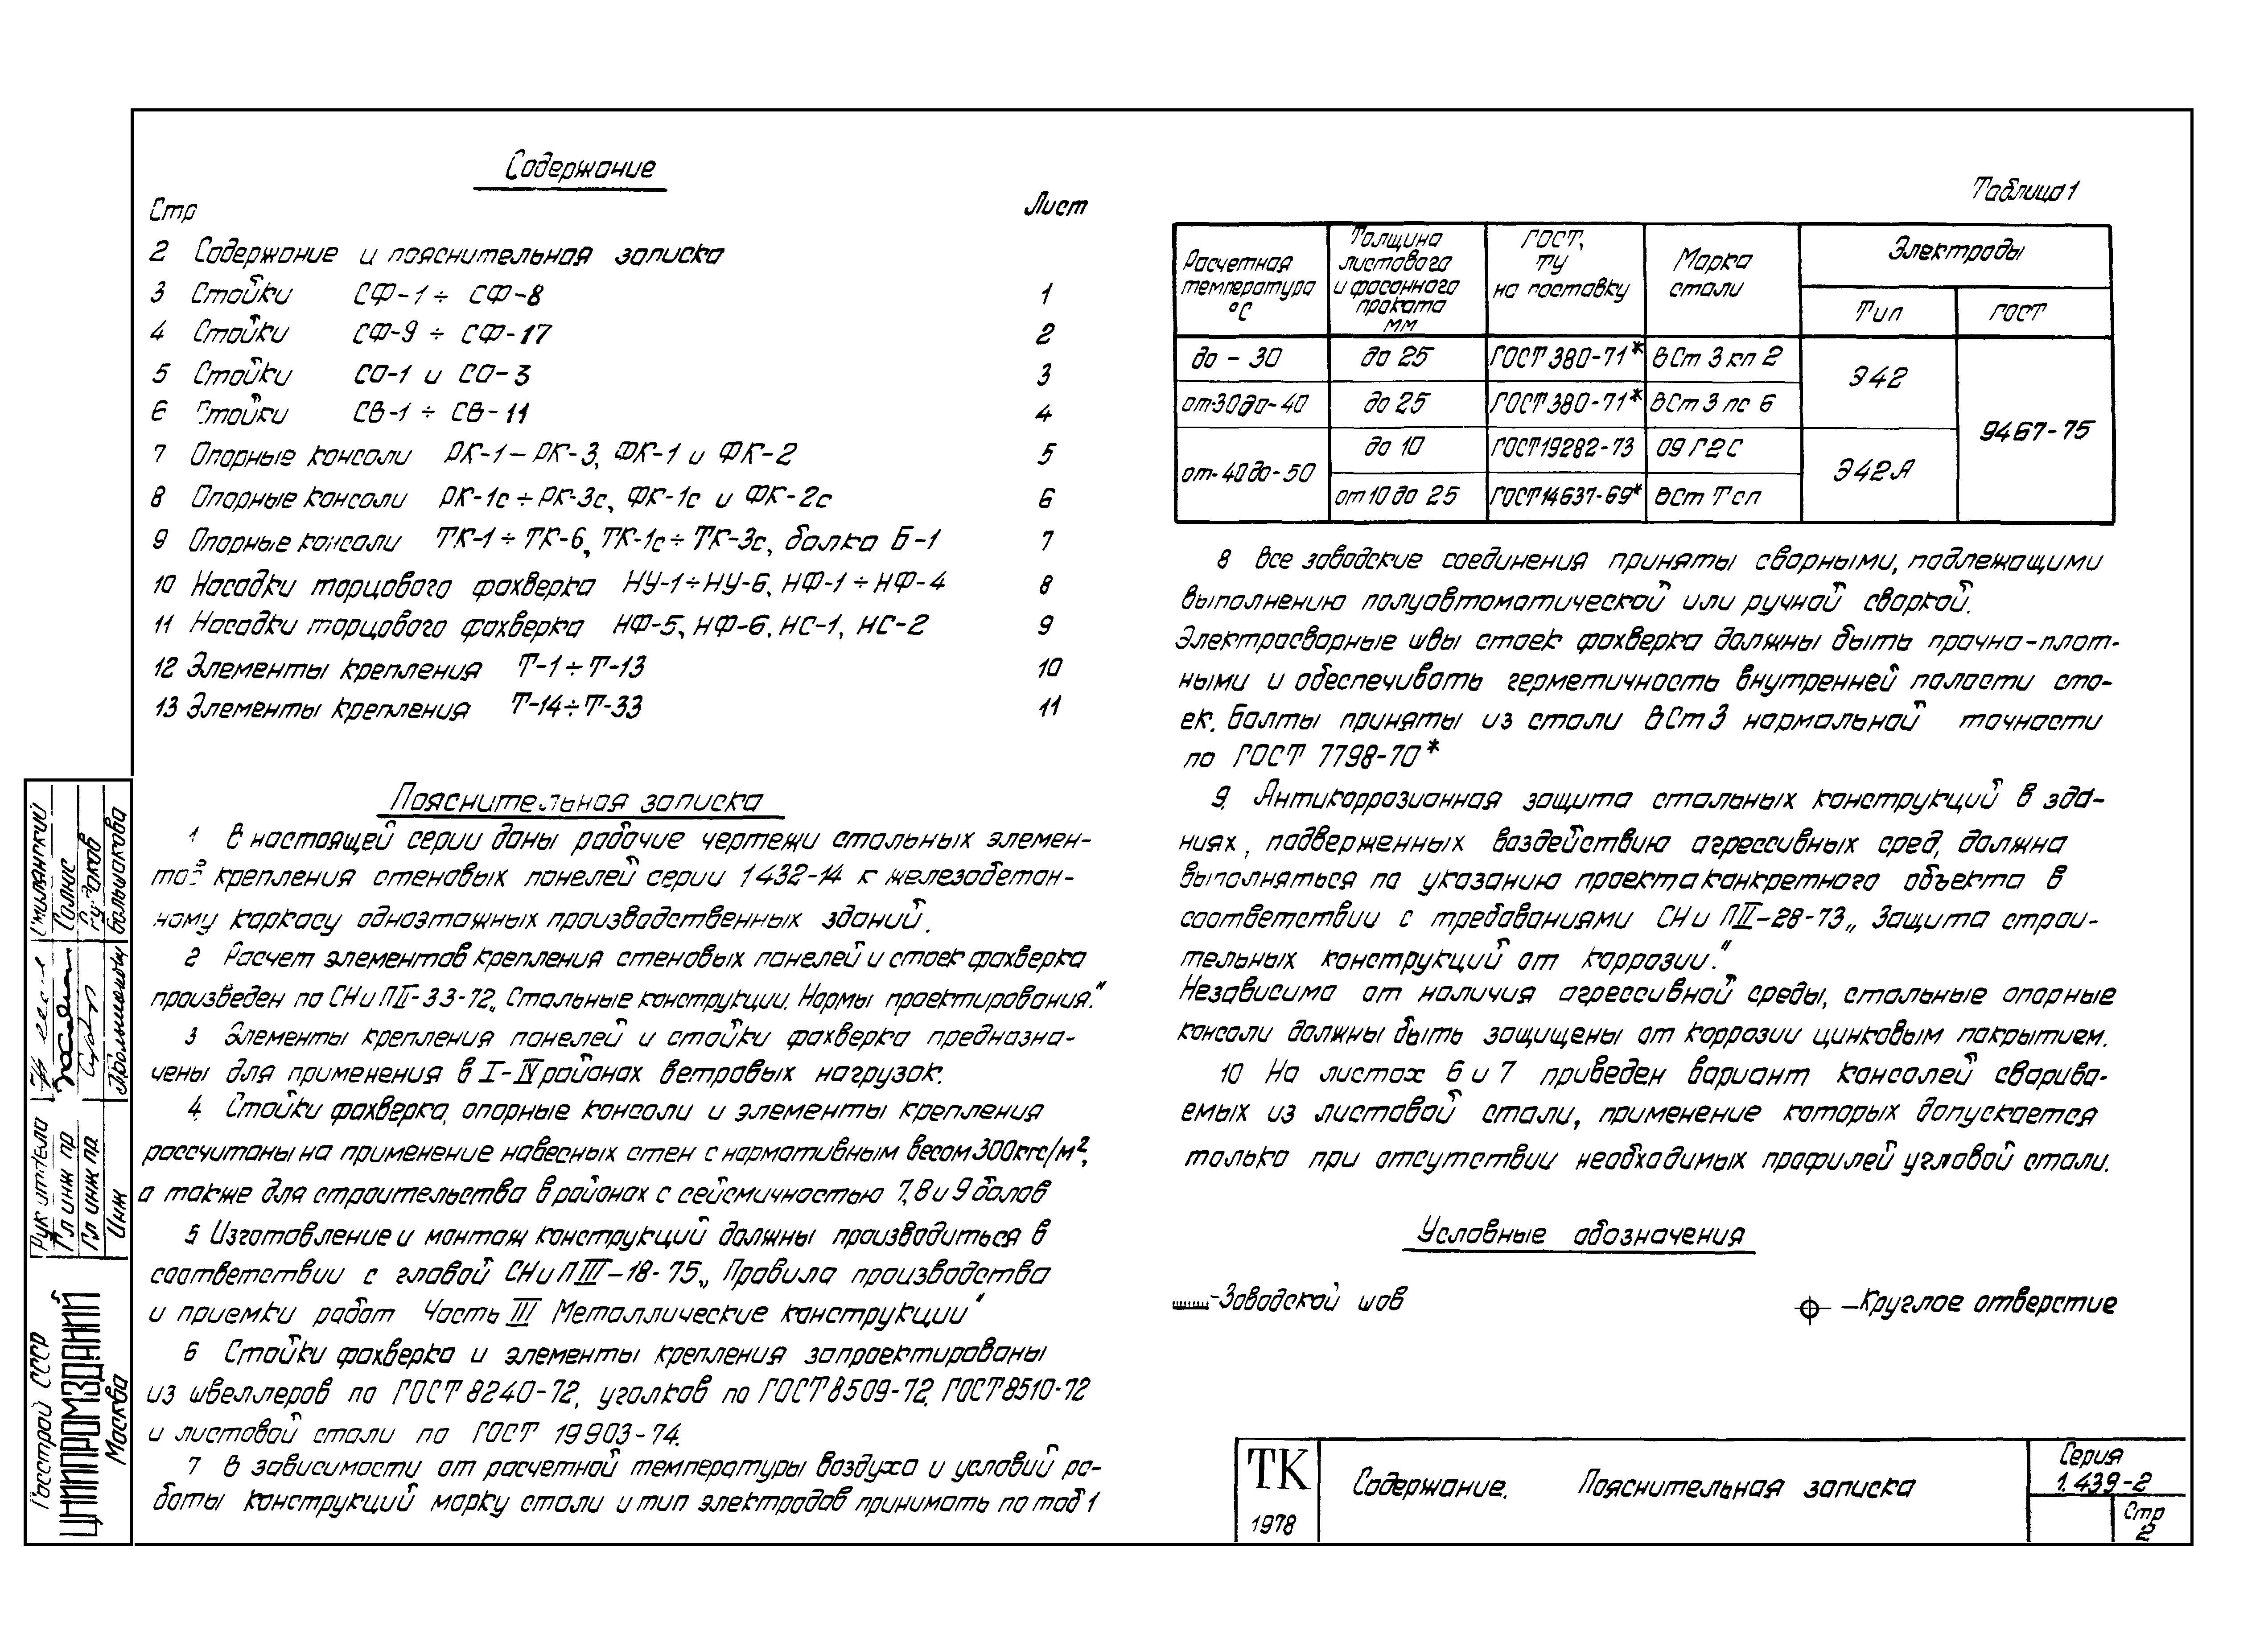 Содержание
Стр Лист
2 Содержание и пояснительная записка
3 Стойки СФ-1 ÷ СФ-8 1
4 Стойки СФ-9 ÷ СФ-17 2
5 Стойки СО-1 и СО-3 3
6 Стойки СВ-1 ÷ СВ-11 4
7 Опорные консоли РК-1 – РК-3, ФК-1 и ФК-2 5
8 Опорные консоли РК-1с ÷ РК-3с, ФК-1с и ФК-2с 6
9 Опорные консоли ТК-1 ÷ ТК-6, ТК-1с ÷ ТК-3с, балка Б-1 7
10 Насадки торцового фахверка НУ-1÷НУ-6, НФ-1 ÷ НФ-4 8
11 Насадки торцового фахверка НФ-5, НФ-6, НС-1, НС-2 9
12 Элементы крепления Т-1 ÷ Т-13 10
13 Элементы крепления Т-14÷Т-33 11
Пояснительная записка
1 В настоящей серии даны рабочие чертежи стальных элемен-
тов крепления стеновых панелей серии 1432-14 к железобетон-
ному каркасу одноэтажных производственных зданий.
2 Расчет элементов крепления стеновых панелей и стоек фахверка
произведен по СНиП II-33-72 „Стальные конструкции. Нормы проектирования."
3 Элементы крепления панелей и стойки фахверка предназна-
чены для применения в I-IV районах ветровых нагрузок.
4. Стойки фахверка, опорные консоли и элементы крепления
рассчитаны на применение навесных стен с нормативным весом 300кгс/м²,
а также для строительства в районах с сейсмичностью 7,8 и 9 балов
5 Изготовление и монтаж конструкций должны производиться в
соответствии с главой СНиП III-18-75 „Правила производства
и приемки работ Часть III Металлические конструкции"
6 Стойки фахверка и элементы крепления запроектированы
из швеллеров по ГОСТ 8240-72, уголков по ГОСТ 8509-72, ГОСТ 8510-72
и листовой стали по ГОСТ 19903-74.
7 В зависимости от расчетной температуры воздуха и условий ра-
боты конструкций марку стали и тип электродов принимать по таб 1
Таблица 1
Расчетная температура °С
Толщина листового и фасонного проката мм
ГОСТ, ТУ на поставку
Марка стали
Электроды
Тип ГОСТ
до – 30 до 25 ГОСТ 380-71* ВСт 3 кп 2 Э42 9467-75
от-30до-40 до 25 ГОСТ 380-71* ВСт 3 пс 6
от-40до-50 до 10 ГОСТ19282-73 09 Г2С Э42А
от 10 до 25 ГОСТ14637-69* ВСт Т сп
8 Все заводские соединения приняты сварными, подлежащими
выполнению полуавтоматической или ручной сваркой.
Электросварные швы стоек фахверка должны быть прочно-плот-
ными и обеспечивать герметичность внутренней полости сто-
ек. Болты приняты из стали ВСт3 нормальной точности
по ГОСТ 7798-70*
9. Антикоррозионная защита стальных конструкций в зда-
ниях, подверженных воздействию агрессивных сред, должна
выполняться по указанию проекта конкретного объекта в
соответствии с требованиями СНиП II-28-73 „Защита строи-
тельных конструкций от коррозии."
Независимо от наличия агрессивной среды, стальные опорные
консоли должны быть защищены от коррозии цинковым покрытием.
10 На листах 6 и 7 приведен вариант консолей сварива-
емых из листовой стали, применение которых допускается
только при отсутствии необходимых профилей угловой стали.
Условные обозначения
-Заводской шов
–Круглое отверстие
ТК
1978
Содержание. Пояснительная записка
Серия
1.439-2
Стр
2
Госстрой СССР
ЦНИИПРОМЗДАНИЙ
Москва
Гл инж пр
Гл инж пр
Инж
Смилянский
Большакова